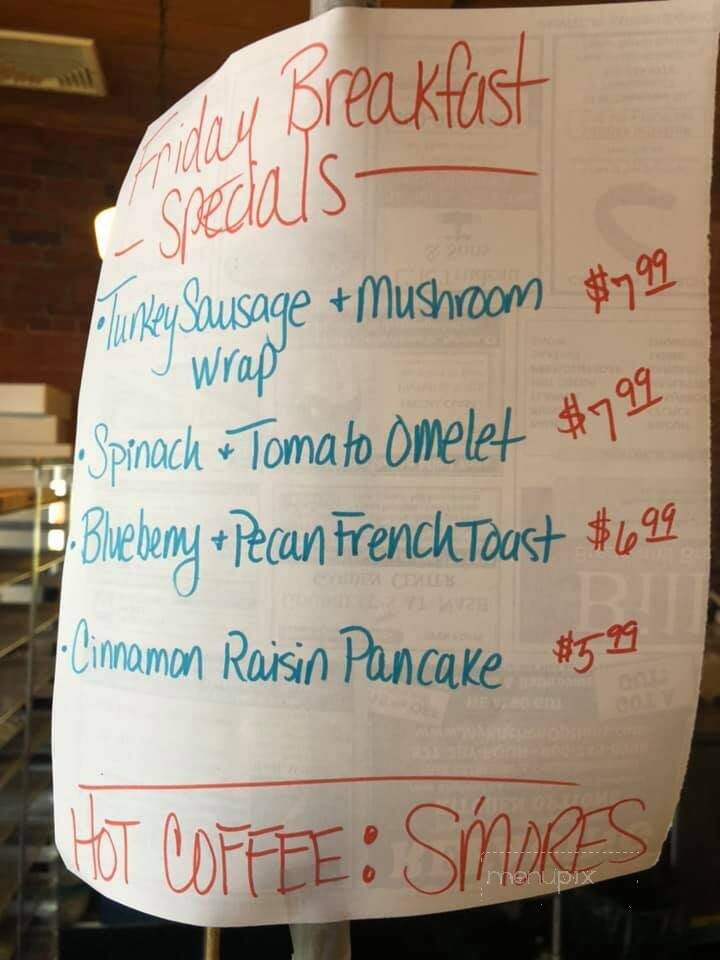 Friday Breakfast
- Specials
• Turkey Sausage + Mushroom $7.99
Wrap
• Spinach + Tomato Omelet $7.99
• Blueberry + Pecan French Toast $6.99
• Cinnamon Raisin Pancake $5.99
HOT COFFEE: S'MORES
menupix